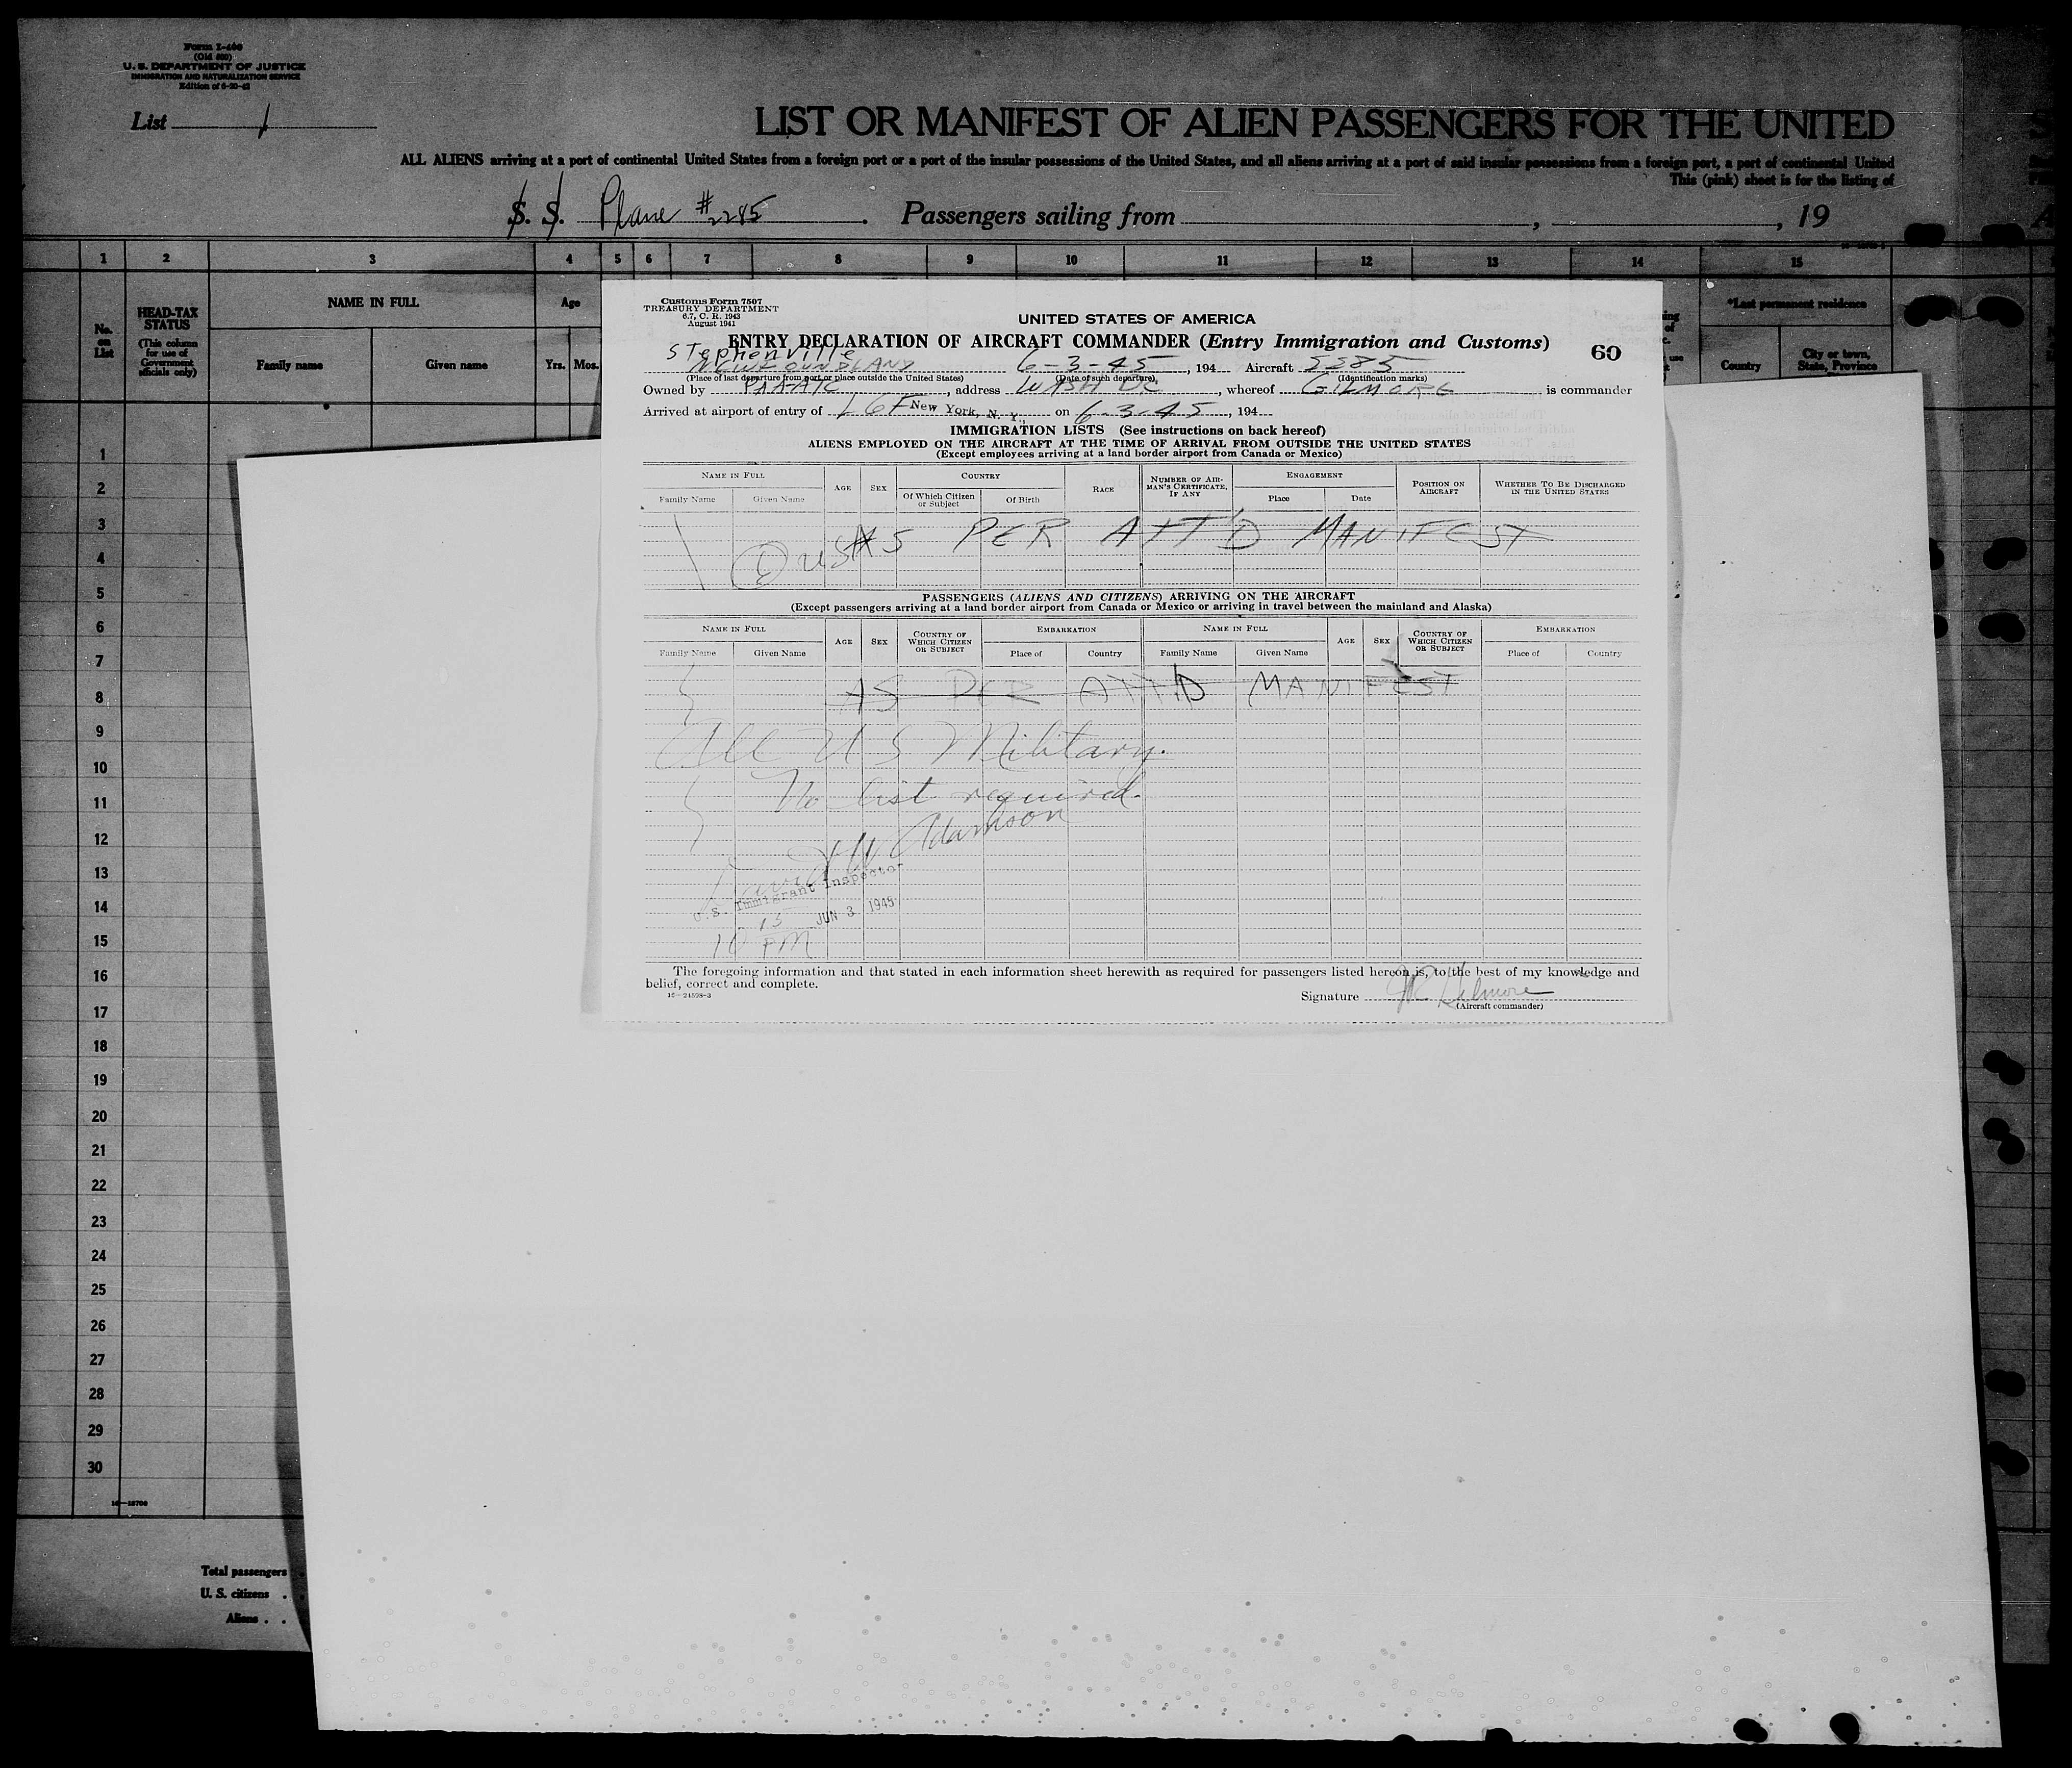 Form I-466
(Old 500)
U. S. DEPARTMENT OF JUSTICE
IMMIGRATION AND NATURALIZATION SERVICE
List 1
LIST OR MANIFEST OF ALIEN PASSENGERS FOR THE UNITED
ALL ALIENS arriving at a port of continental United States from a foreign port or a port of the insular possessions of the United States, and all aliens arriving at a port of said insular possessions from a foreign port, a port of continental United
This (pink) sheet is for the listing of
S. S. Plane #2285 . Passengers sailing from , , 19
1 2 3 4 5 6 7 8 9 10 11 12 13 14 15
No. on List
HEAD-TAX STATUS
(This column for use of Government officials only)
NAME IN FULL
Family name Given name
Age
Yrs. Mos.
*Last permanent residence
Country City or town, State, Province
Customs Form 7507
TREASURY DEPARTMENT
6.7, C. R. 1943
August 1941
UNITED STATES OF AMERICA
ENTRY DECLARATION OF AIRCRAFT COMMANDER (Entry Immigration and Customs)
60
Stephenville
NEWFOUNDLAND 6-3-45, 194 Aircraft
(Place of last departure from port or place outside the United States) (Date of such departure) (Identification marks)
Owned by PAA-ATC, address WASH DC, whereof GILMORE is commander
Arrived at airport of entry of LGF New York, N. Y., on 6-3-45, 194
IMMIGRATION LISTS (See instructions on back hereof)
ALIENS EMPLOYED ON THE AIRCRAFT AT THE TIME OF ARRIVAL FROM OUTSIDE THE UNITED STATES
(Except employees arriving at a land border airport from Canada or Mexico)
NAME IN FULL AGE SEX COUNTRY RACE NUMBER OF AIRMAN'S CERTIFICATE, IF ANY ENGAGEMENT POSITION ON AIRCRAFT WHETHER TO BE DISCHARGED IN THE UNITED STATES
Family Name Given Name Of Which Citizen or Subject Of Birth Place Date
AS PER ATT'D MANIFEST
PASSENGERS (ALIENS AND CITIZENS) ARRIVING ON THE AIRCRAFT
(Except passengers arriving at a land border airport from Canada or Mexico or arriving in travel between the mainland and Alaska)
NAME IN FULL AGE SEX COUNTRY OF WHICH CITIZEN OR SUBJECT EMBARKATION NAME IN FULL AGE SEX COUNTRY OF WHICH CITIZEN OR SUBJECT EMBARKATION
Family Name Given Name Place of Country Family Name Given Name Place of Country
AS PER ATT'D MANIFEST
All U S Military.
No list required.
David W Adamson
U.S. Immigrant Inspector
JUN 3 1945
10 15 PM
The foregoing information and that stated in each information sheet herewith as required for passengers listed hereon is, to the best of my knowledge and
belief, correct and complete.
16—24598-3
Signature Gilmore
(Aircraft commander)
1
2
3
4
5
6
7
8
9
10
11
12
13
14
15
16
17
18
19
20
21
22
23
24
25
26
27
28
29
30
16—18706
Total passengers
U. S. citizens . .
Aliens . .